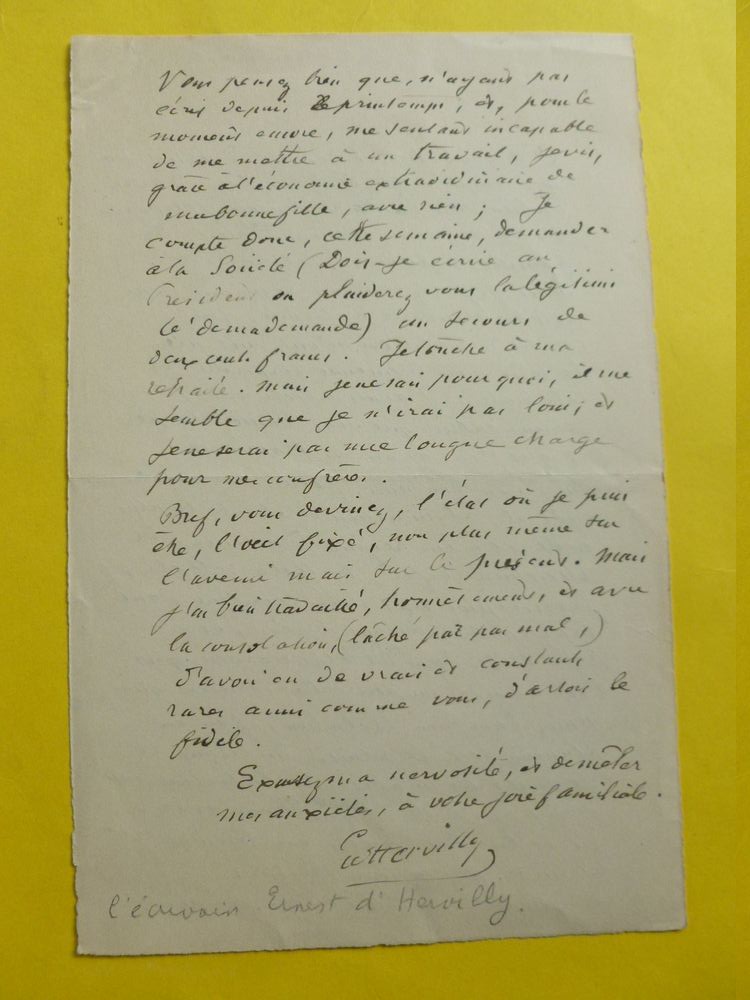 Vous pensez bien que, n'ayant pas
écrit depuis le printemps, et, pour le
moment encore, me sentant incapable
de me mettre à un travail, je vis,
grâce à l'économie extraordinaire de
ma bonne fille, avec rien ; Je
compte donc, cette semaine, demander
à la Société (Dois-je écrire au
Président ou plaiderez vous la légitimi
té de ma demande) un secours de
deux cents francs. Je touche à ma
retraite. Mais je ne sais pourquoi, il me
semble que je n'irai pas loin, et
je ne serai pas une longue charge
pour mes confrères.
Bref, vous devinez, l'état où je puis
être, l'oeil fixé, non plus même sur
l'avenir mais sur le présent. Mais
j'ai bien travaillé, honnêtement, et avec
la consolation, (lâché par pas mal,)
d'avoir eu de vrais et constants
rares amis comme vous, d'Artois le
fidèle.
Excusez ma nervosité, et de mêler
mes anxiétés, à votre joie familiale.
E d'Hervilly
l'écrivain Ernest d'Hervilly.